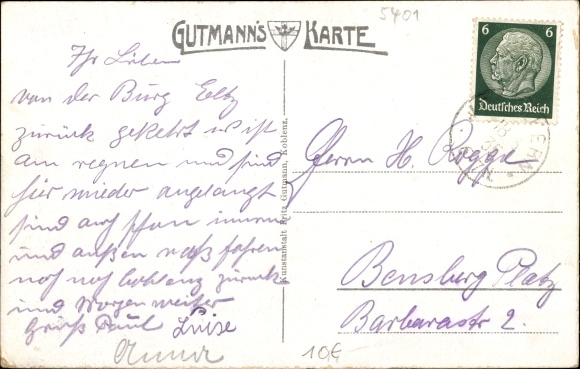 5401
GUTMANN'S KARTE
6 6
Deutsches Reich
Ihr Lieben
von der Burg Eltz
zurück gekehrt ist
am regnen und sind
hier wieder angelangt
sind auch schon innen
und außen naß fahren
noch nach Coblenz zurück
und Morgen weiter
Gruß Paul Luise
Anna
Kunstanstalt Fritz Gutmann, Koblenz.
Herrn H. Rogge
Bensberg Platz
Barbarastr 2.
10€